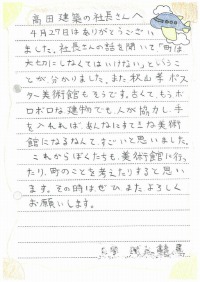 高田建築の社長さんへ
4月27日はありがとうござい
ました。社長さんの話を聞いて「町は
大切にしなくてはいけない」というこ
とが分かりました。また秋山孝ポス
ター美術館もそうです。古くて、もうボ
ロボロな建物でも、人が協力し、手
を入れれば、あんなにすてきな美術
館になるなんて、すごいと思いました。
これからぼくたちも、美術館に行っ
たり、町のことを考えたりすると思い
ます。その時は、ぜひ、またよろしく
お願いします。